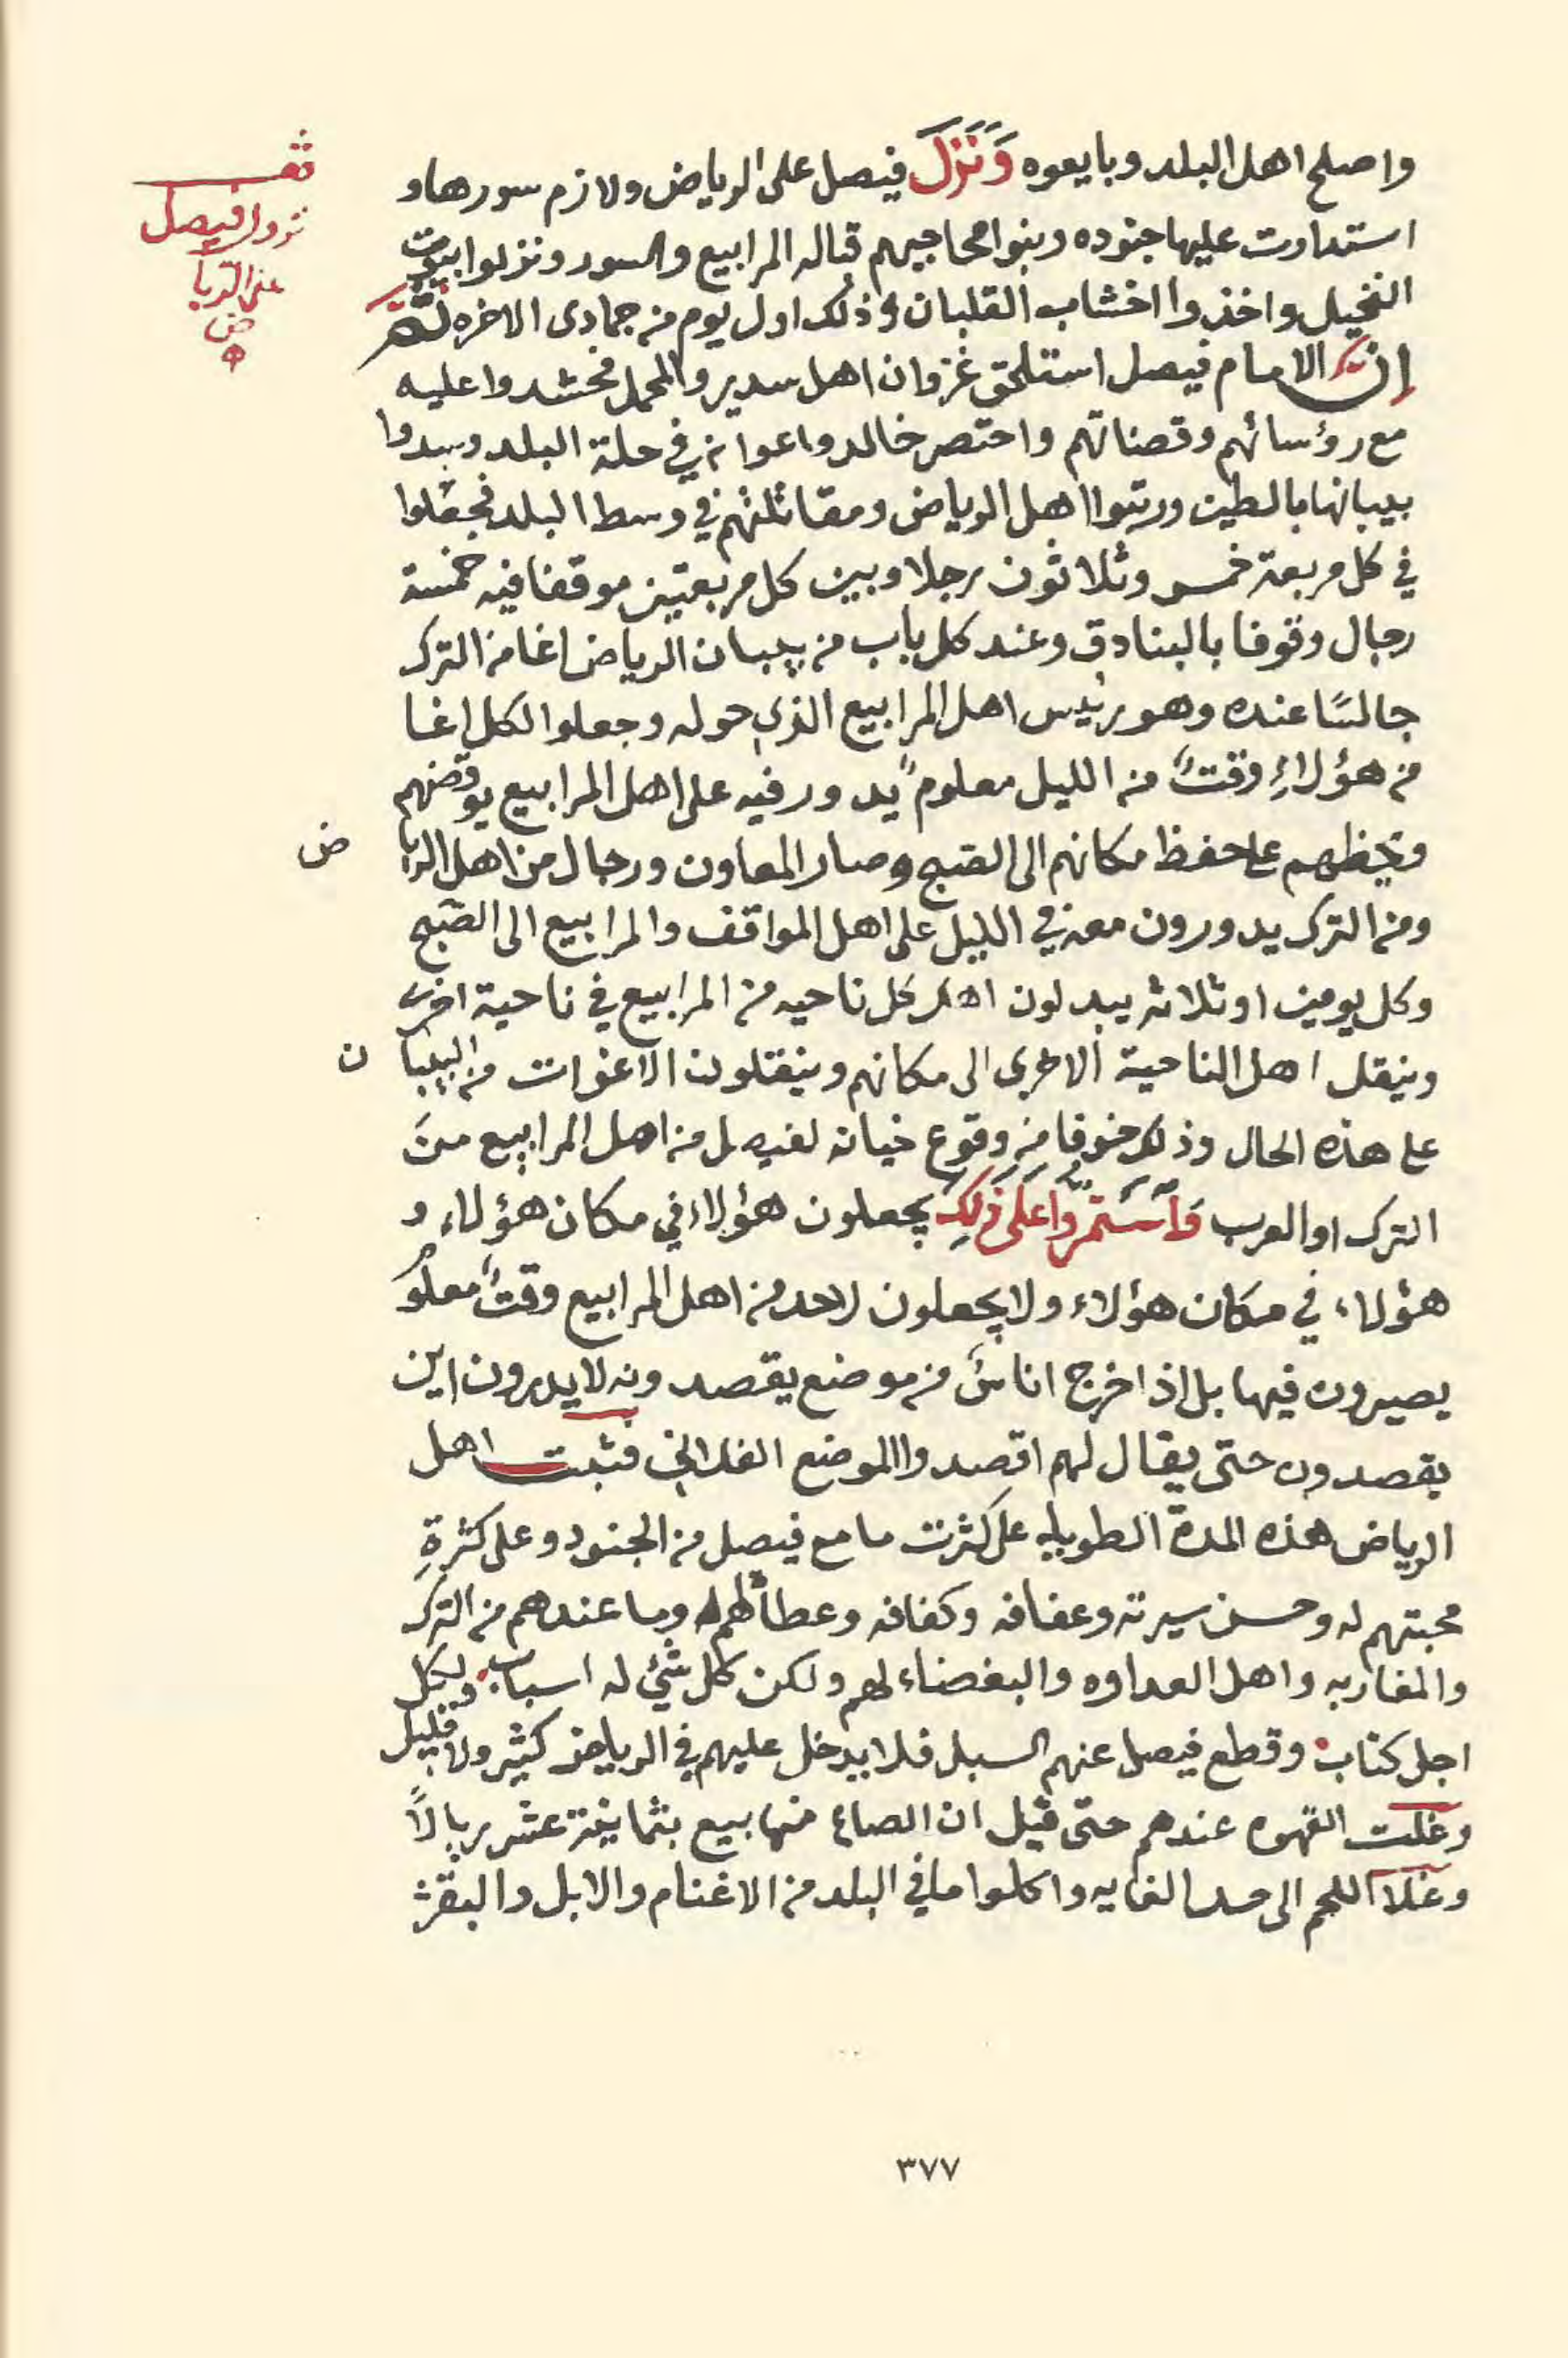 واصلح اهل البلد وبايعوه وَنَزَلَ فيصل على الرياض ولازم سورها و
استدارت عليها جنوده وبنوا محاجيهم قبالة المرابيع والسور ونزلوا بيوت
النخيل واخذوا اخشاب القلبان وذلك اول يوم من جمادى الاخره ثم
ان الامام فيصل استلحق غزوان اهل سدير والمحمل فحشدوا عليه
مع رؤسائهم وقضاتهم واحتصر خالد واعوانه في حلة البلد وسدوا
بيبانها بالطين ورتبوا اهل الرياض ومقاتلتهم في وسط البلد فجعلوا
في كل مربعة خمس وثلاثون رجلا وبين كل مربعتين موقفا فيه خمسة
رجال وقوفا بالبنادق وعند كل باب من بيبان الرياض اغا من الترك
جالسًا عنده وهو رئيس اهل المرابيع الذي حوله وجعلوا لكل اغا
من هؤلاءِ وقتاً من الليل معلوم يدور فيه على اهل المرابيع يوقضهم
ويحظهم على حفظ مكانهم الى الصبح وصار المعاون ورجال من اهل الرياض
ومن الترك يدورون معه في الليل على اهل المواقف والمرابيع الى الصبح
وكل يومين او ثلاثه يبدلون اهل كل ناحيه من المرابيع في ناحية اخرى
وينقل اهل الناحية الاخرى الى مكانهم وينقلون الاغوات من البيبان
على هذه الحال وذلك خوفا من وقوع خيانه لفيصل من اهل المرابيع من
الترك او العرب فَاسْتَمَرُّوا عَلَى ذَلِكَ يجعلون هؤلاء في مكان هؤلاء و
هؤلاء في مكان هؤلاء ولا يجعلون لاحد من اهل المرابيع وقتاً معلوم
يصيرون فيها بل اذ اخرج اناسٌ من موضع يقصدونه لا يدرون اين
يقصدون حتى يقال لهم اقصدوا الموضع الفلاني فثبت اهل
الرياض هذه المدة الطويله على كثرت ما مع فيصل من الجنود وعلى كثرةِ
محبتهم له وحسن سيرته وعفافه وكفافه وعطائه لهم وما عندهم من الترك
والمغاربه واهل العداوه والبغضاء لهم ولكن كل شئ له اسباب ولكل
اجل كتاب وقطع فيصل عنهم السبل فلا يدخل عليهم في الرياض كثير ولا قليل
وغلت القهوه عندهم حتى قيل ان الصاع منها بيع بثمانية عشر ريالاً
وغلا اللحم الى حد الغايه واكلوا ما في البلد من الاغنام والابل والبقر
قف
نزول فيصل
على الريا
ض
٣٧٧